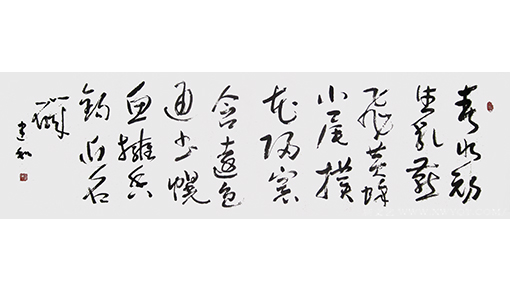 春水初
生乳燕
飛黄蜂
小尾撲
花歸窗
含遠色
通書幌
魚擁香
鈎近石
磯
建和